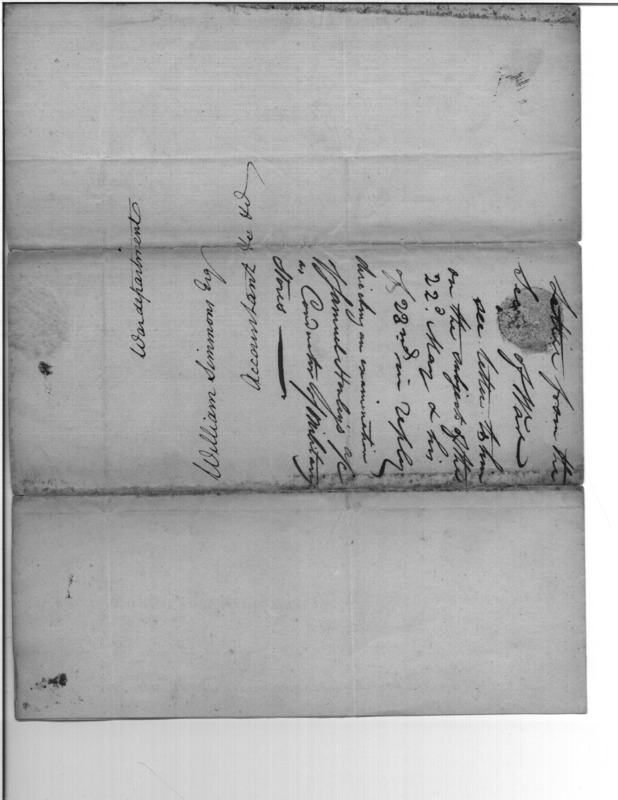 Letter from the
Secy of War
see letter to him
on the subject of the
22d May & his
of 28nd in reply
directing an examination
of Samuel Hodgs a/c
as Conductor of Military
Stores
Accountant &c &c
William Simmons Esq
War department